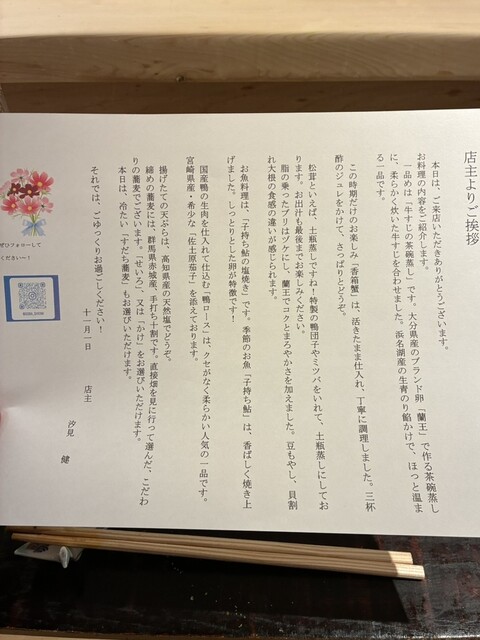 店主よりご挨拶
本日は、ご来店いただきありがとうございます。
お料理の内容をご紹介します。
一品めは「牛すじの茶碗蒸し」です。大分県産のブランド卵「蘭王」で作る茶碗蒸し
に、柔らかく炊いた牛すじを合わせました。浜名湖産の生青のり餡かけで、ほっと温ま
る一品です。
この時期だけのお楽しみ「香箱蟹」は、活きたまま仕入れ、丁寧に調理しました。三杯
酢のジュレをかけて、さっぱりとどうぞ。
松茸といえば、土瓶蒸しですね！特製の鴨団子やミツバをいれて、土瓶蒸しにしてお
ります。お出汁も最後までお楽しみください。
脂の乗ったブリはヅケにし、蘭王でコクとまろやかさを加えました。豆もやし、貝割
れ大根の食感の違いが感じられます。
お魚料理は、「子持ち鮎の塩焼き」です。季節のお魚「子持ち鮎」は、香ばしく焼き上
げました。しっとりとした卵が特徴です！
国産鴨の生肉を仕入れて仕込む「鴨ロース」は、クセがなく柔らかい人気の一品です。
宮崎県産・希少な「佐土原茄子」を添えております。
揚げたての天ぷらは、高知県産の天然塩でどうぞ。
締めの蕎麦には、群馬県赤城産、手打ち十割です。直接畑を見に行って選んだ、こだわ
りの蕎麦でございます。「せいろ」又は「かけ」をお選びいただけます。
本日は、冷たい「すだち蕎麦」もお選びいただけます。
それでは、ごゆっくりお過ごしください！
十一月一日　店主
汐見　健
ぜひフォローして
ください〜！